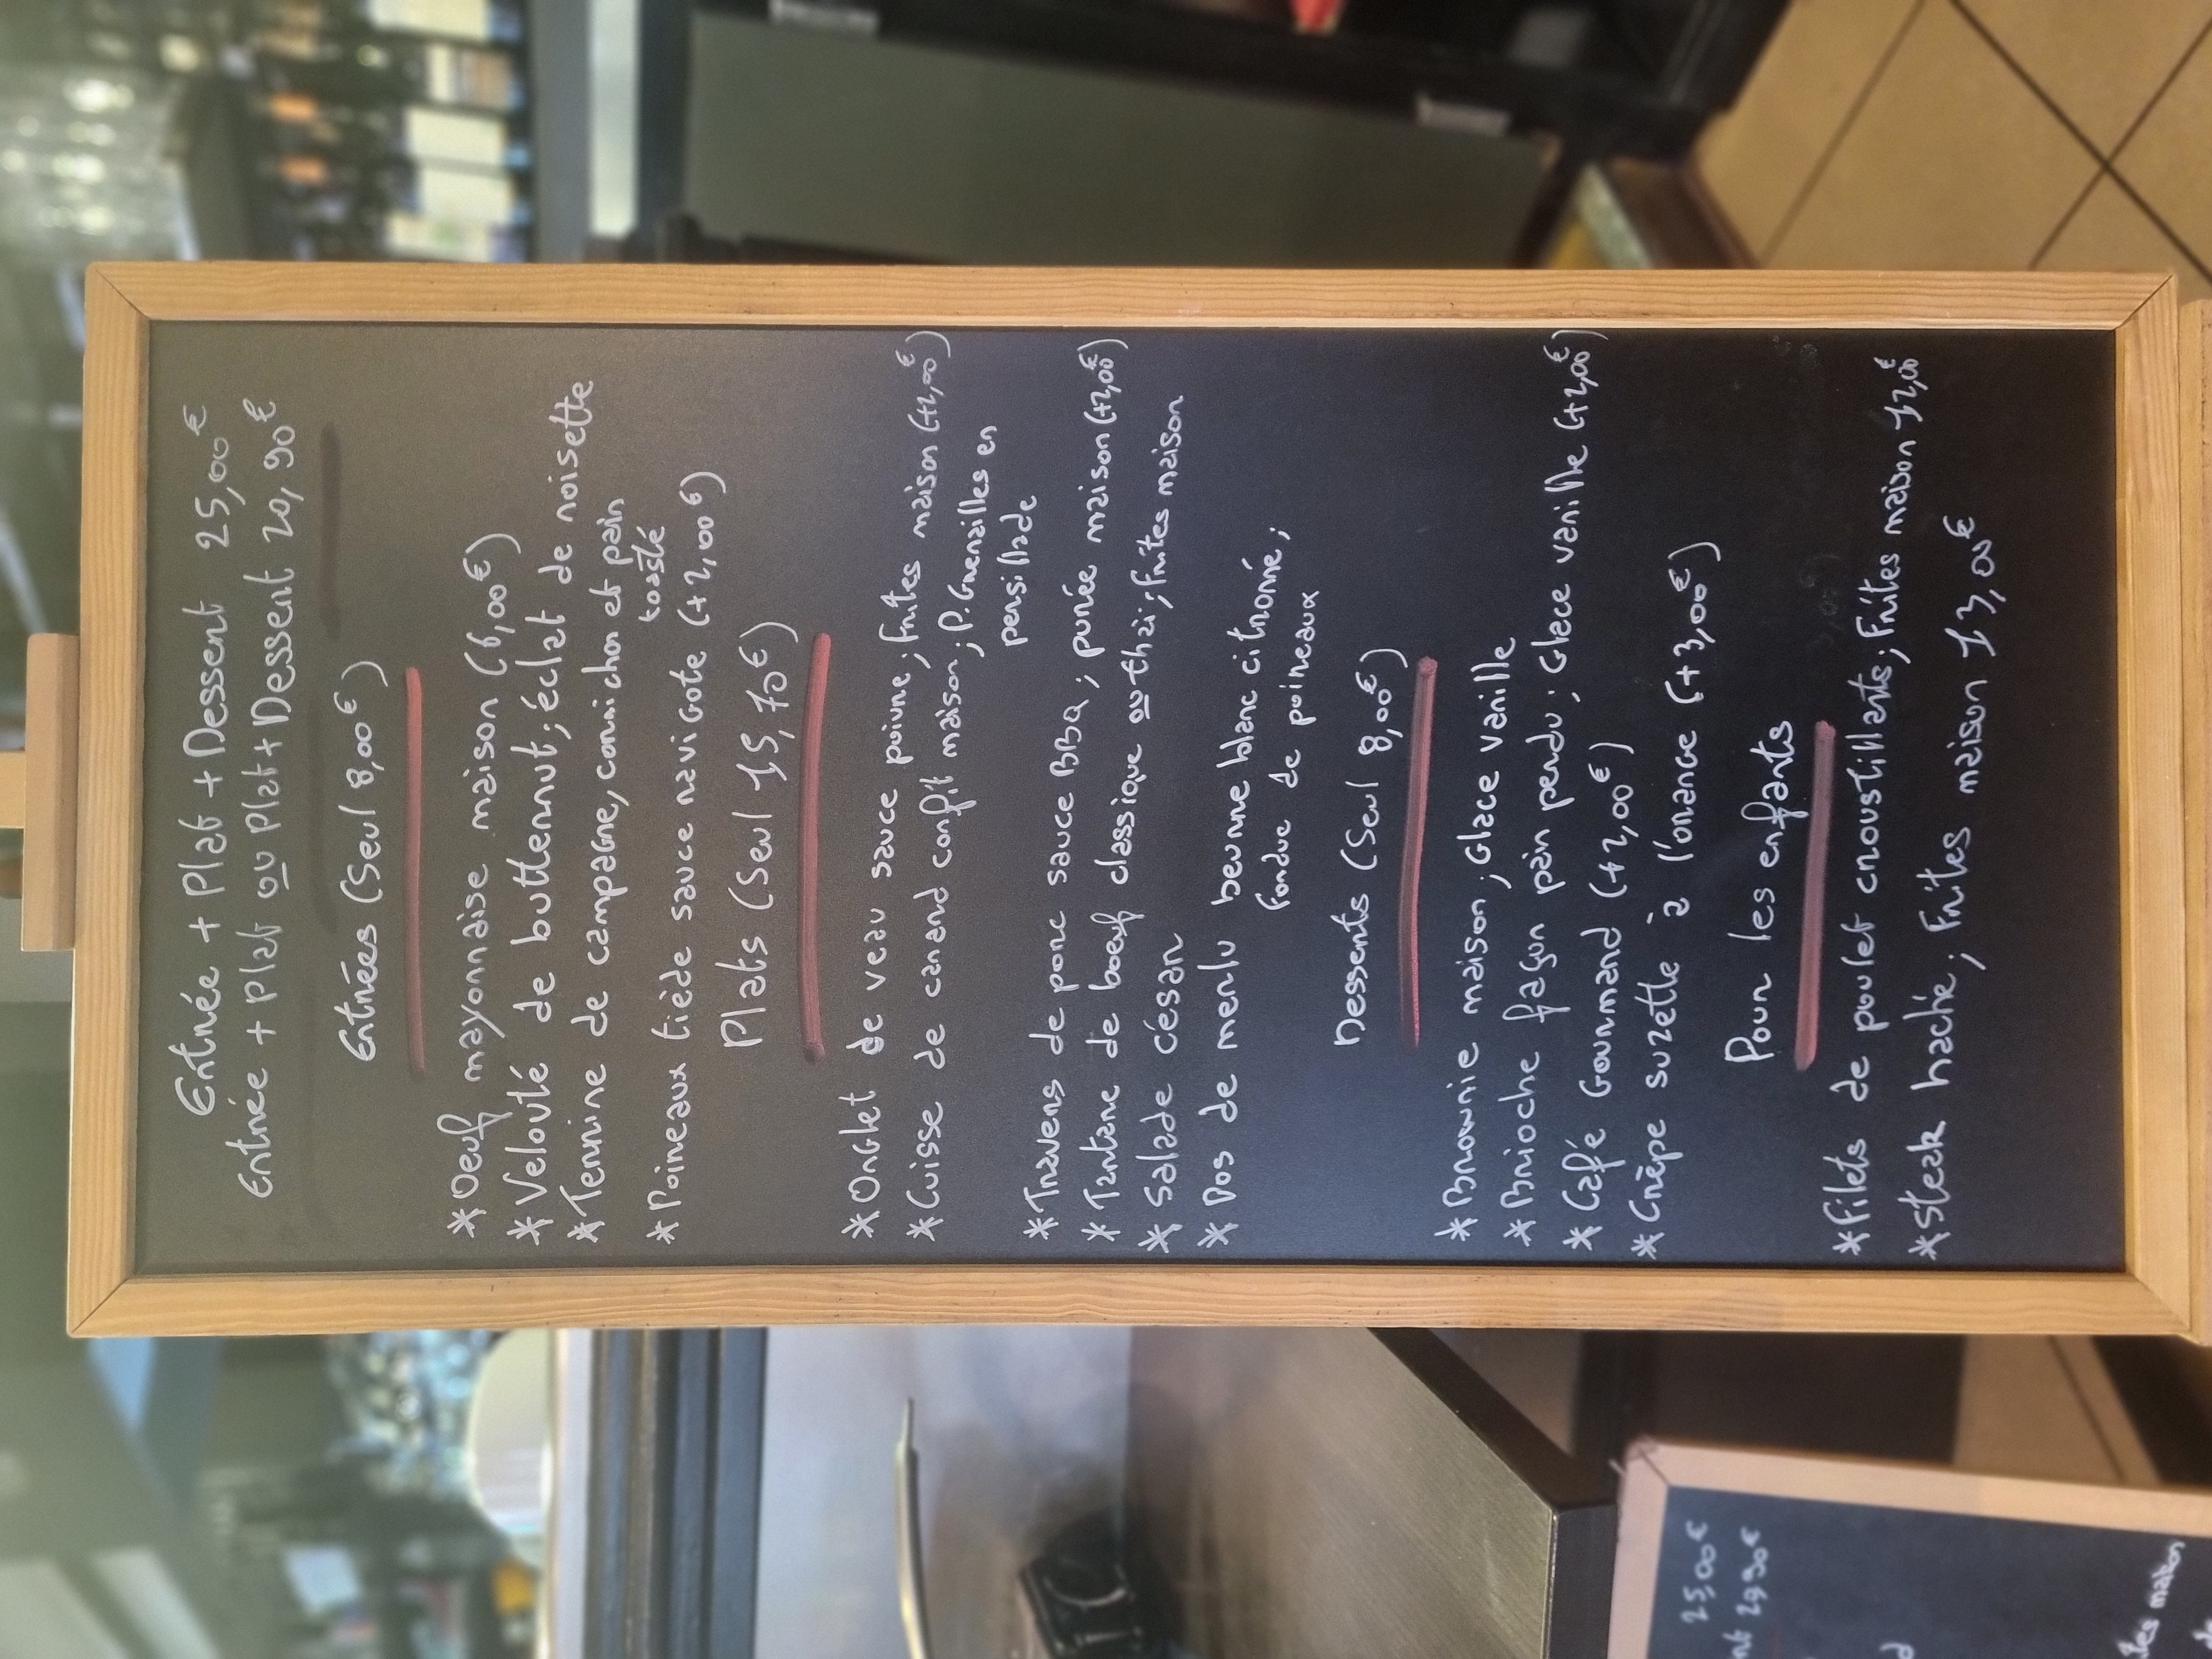 Entrée + Plat + Dessert 25,00€
Entrée + Plat ou Plat + Dessert 20,90€
Entrées (Seul 8,00€)
* Oeuf mayonnaise maison (6,00€)
* Velouté de butternut ; éclat de noisette
* Terrine de campagne, cornichon et pain
toasté
* Poireaux tiède sauce navigote (+2,00€)
Plats (Seul 15,70€)
* Onglet de veau sauce poivre ; frites maison (+2,00€)
* Cuisse de canard confit maison ; P. Grenailles en
persillade
* Travers de porc sauce BBQ ; purée maison (+2,00€)
* Tartare de boeuf classique ou thaï ; frites maison
* Salade césar
* Dos de merlu beurre blanc citronné ;
fondue de poireaux
Desserts (Seul 8,00€)
* Brownie maison ; Glace vanille
* Brioche façon pain perdu ; Glace vanille (+2,00€)
* Café Gourmand (+2,00€)
* Crèpe suzette à l'orange (+3,00€)
Pour les enfants
* Filets de poulet croustillants ; Frites maison 12,00€
* Steak haché ; Frites maison 13,00€
25,00€